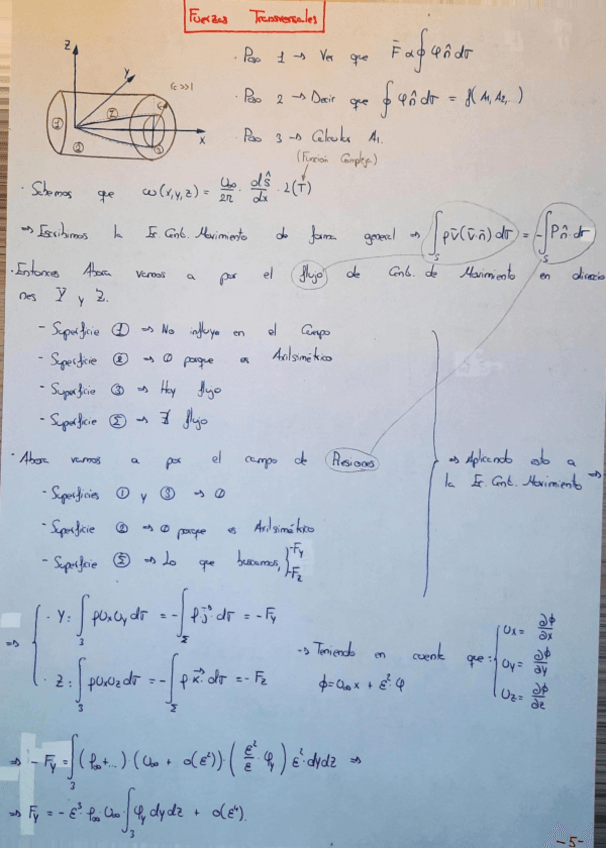 Fuerzas Transversales
Z
Y
X
r>>1
1
2
3
Σ
· Paso 1 → Ver que F̄ α ∮ φ n̂ dσ
· Paso 2 → Decir que ∮ φ n̂ dσ = f(A₁, A₂, ..)
· Paso 3 → Calcular A₁.
(Función Compleja)
· Sabemos que ω(x,y,z) = U∞/2π · dŝ/dx · 2(T)
⇒ Escribimos la Ec. Cont. Movimiento de forma general ⇒ ∫_S ρv̄(v̄·n̄) dσ = -∫_S P n̂ · dσ
· Entonces Ahora vamos a por el flujo de Cont. de Movimiento en direccio
nes Y y Z.
- Superficie ① ⇒ No influye en el Cuerpo
- Superficie ② ⇒ 0 porque es Axilsimétrico
- Superficie ③ ⇒ Hay flujo
- Superficie Σ ⇒ ∄ flujo
· Ahora vamos a por el campo de Presiones
⇒ Aplicando esto a
la Ec. Cont. Movimiento ⇒
- Superficies ① y ③ ⇒ 0
- Superficie ② ⇒ 0 porque es Axilsimétrico
- Superficie Σ ⇒ Lo que buscamos, { -Fy
-Fz
⇒ { · Y: ∫₃ ρUxUy dσ = -∫_Σ P j⃗ · dσ = -Fy
· Z: ∫₃ ρUxUz dσ = -∫_Σ P k⃗ · dσ = -Fz
→ Teniendo en cuenta que:
φ = U∞ x + ε² · φ
Ux = ∂φ/∂x
Uy = ∂φ/∂y
Uz = ∂φ/∂z
⇒ -Fy = ∫₃ (ρ∞ + ...) (U∞ + o(ε²)) · (ε²/ε · φy) ε² · dydz ⇒
⇒ Fy = -ε³ · ρ∞ · U∞ ∫₃ φy dydz + o(ε⁴).
-5-